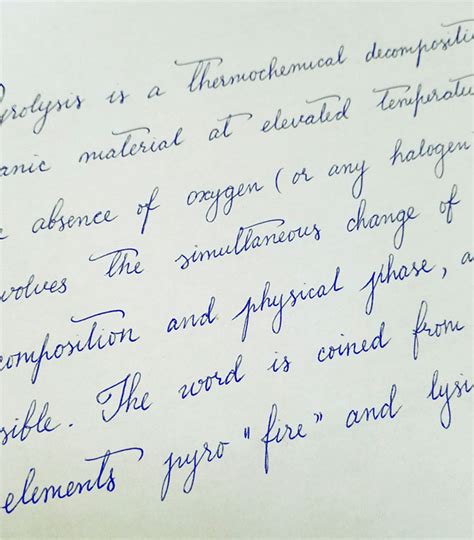 yrolysis is a thermochemical decompositi
anic material at elevated temperatu
absence of oxygen (or any halogen
volves the simultaneous change of
composition and physical phase, a
sible. The word is coined from
elements pyro "fire" and lysi